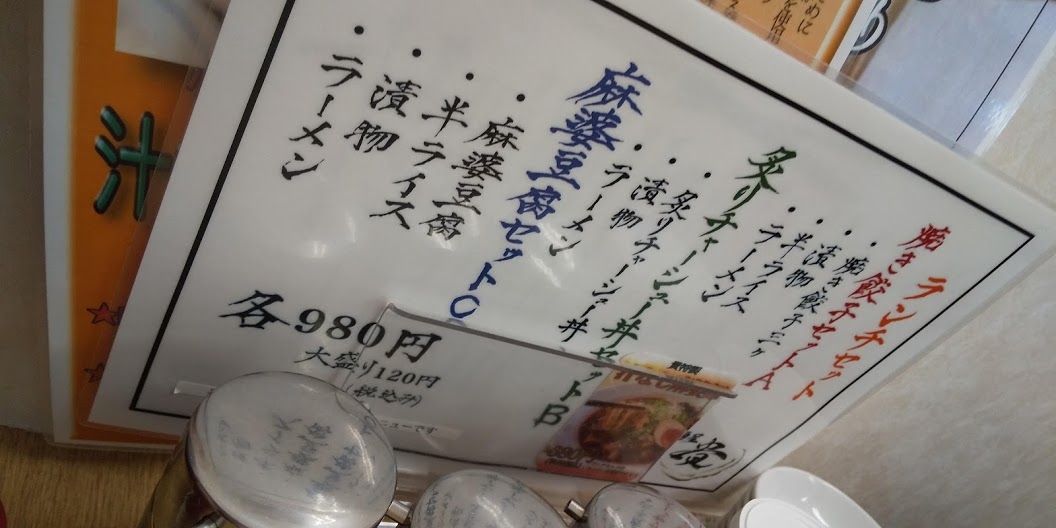 ランチセット
焼き餃子セットA
・焼き餃子三ヶ
・漬物
・半ライス
・ラーメン
炙りチャーシュー丼セットB
・炙りチャーシュー丼
・漬物
・ラーメン
麻婆豆腐セットC
・麻婆豆腐
・半ライス
・漬物
・ラーメン
各980円
大盛り120円
(税込み)
ニューです
汁